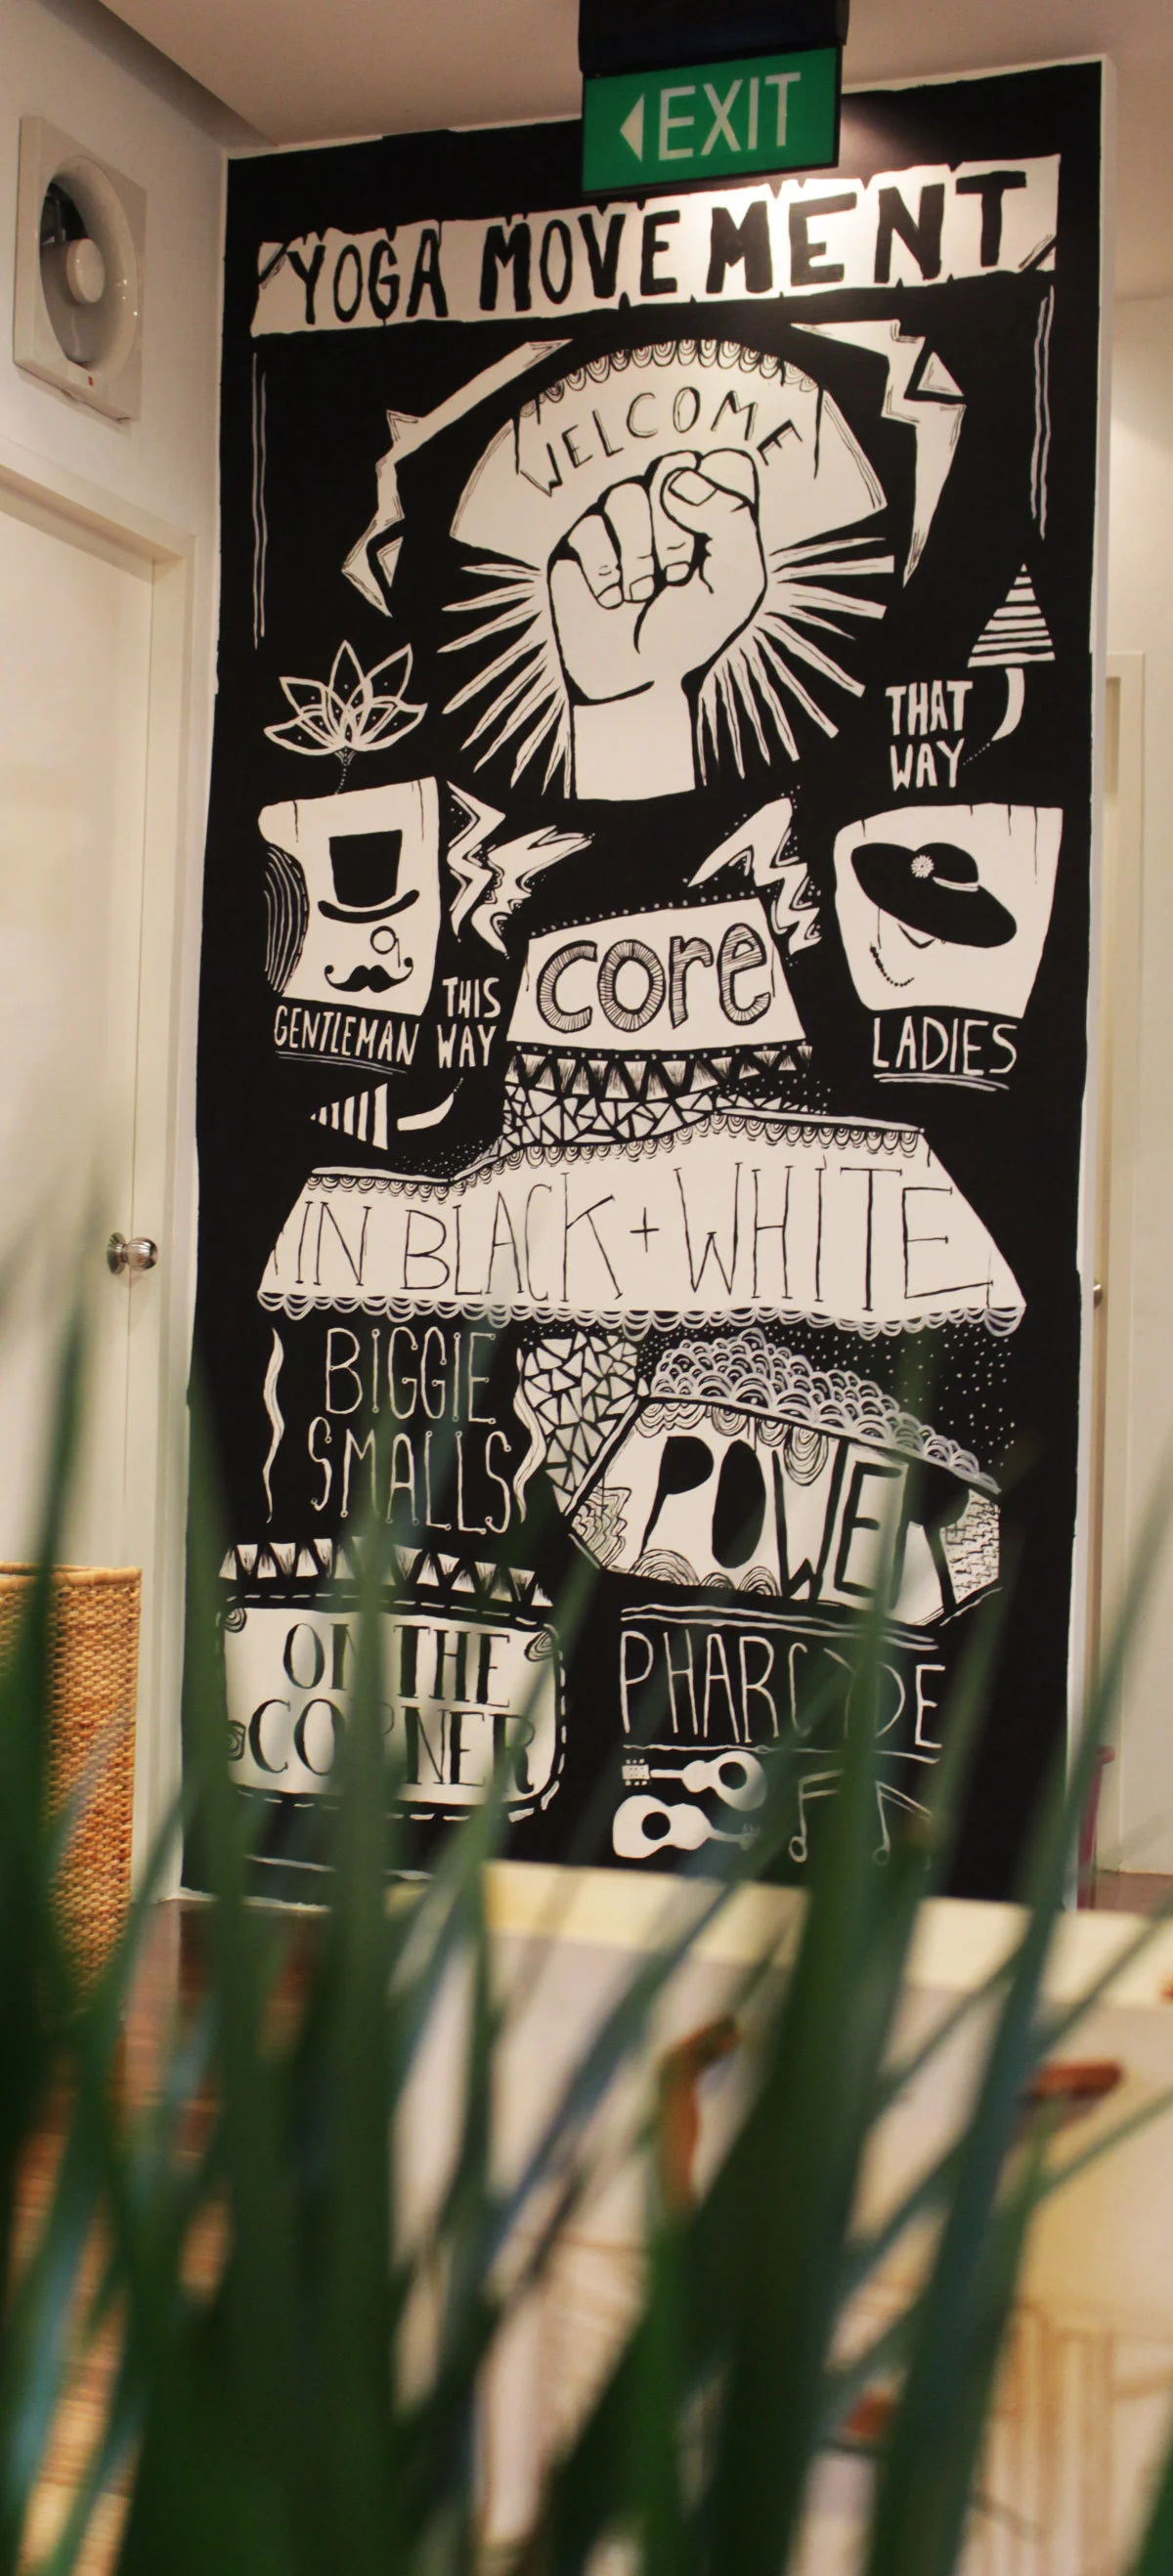 EXIT
YOGA MOVEMENT
WELCOME
THAT
WAY
core
THIS
WAY
GENTLEMAN
LADIES
IN BLACK + WHITE
BIGGIE
SMALLS
POWER
ON THE
CORNER
PHARCYDE